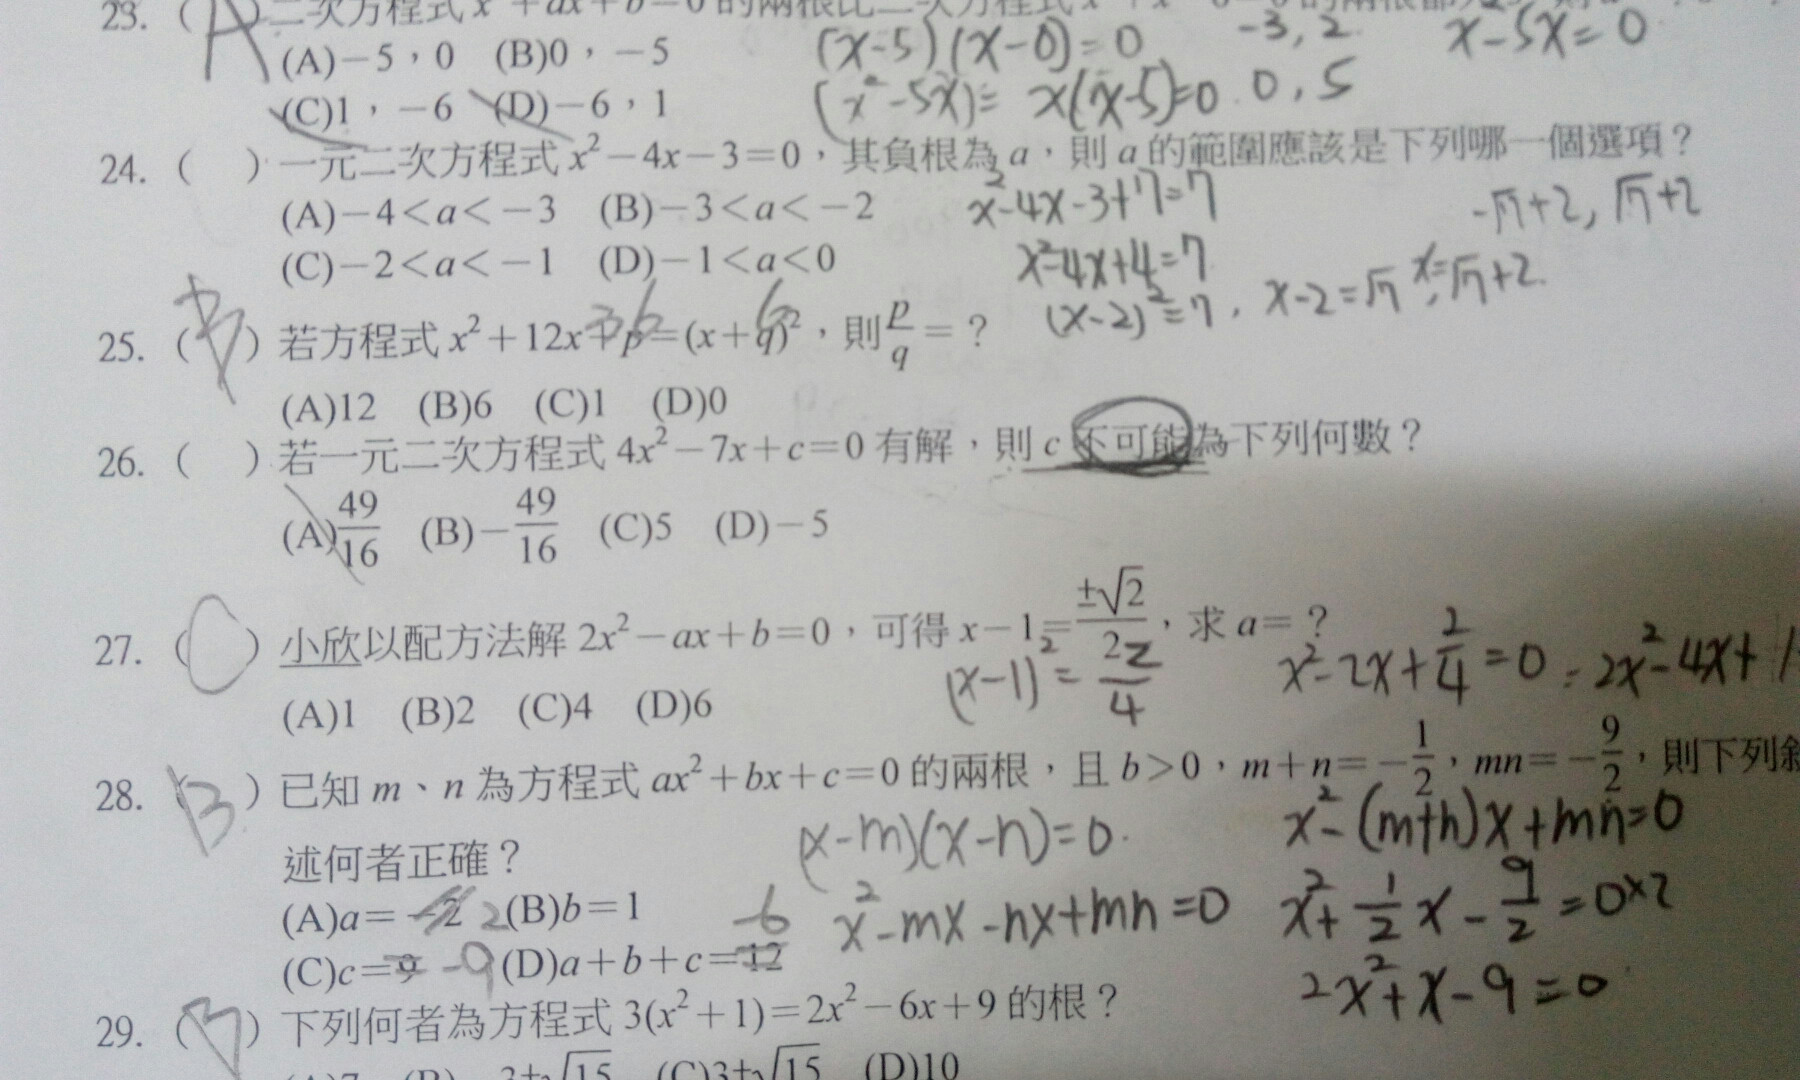 23. ( A ) 二次方程式
(A)－5，0 (B)0，－5
(x-5)(x-0)=0 -3, 2. x²-5x=0
(C)1，－6 (D)－6，1
(x²-5x)= x(x-5)=0 0, 5
24. ( ) 一元二次方程式 x²－4x－3＝0，其負根為 a，則 a 的範圍應該是下列哪一個選項？
(A)－4＜a＜－3 (B)－3＜a＜－2
x²-4x-3+7=7 -√7+2, √7+2
(C)－2＜a＜－1 (D)－1＜a＜0
x²-4x+4=7
(x-2)²=7, x-2=√7 x=√7+2.
25. ( B ) 若方程式 x²＋12x＋p＝(x＋q)²，則 p/q ＝？
36 6
(A)12 (B)6 (C)1 (D)0
26. ( ) 若一元二次方程式 4x²－7x＋c＝0 有解，則 c 不可能為下列何數？
(A)49/16 (B)－49/16 (C)5 (D)－5
27. ( C ) 小欣以配方法解 2x²－ax＋b＝0，可得 x－1＝±√2/2，求 a＝？
(x-1)²=2/4 x²-2x+2/4=0 2x²-4x+1
(A)1 (B)2 (C)4 (D)6
28. ( B ) 已知 m、n 為方程式 ax²＋bx＋c＝0 的兩根，且 b＞0，m＋n＝－1/2，mn＝－9/2，則下列敘
(x-m)(x-n)=0. x²-(m+n)x+mn=0
述何者正確？
(A)a＝－2 2 (B)b＝1
x²-mx-nx+mn=0 x²+1/2x-9/2=0×2
(C)c＝9 -9 (D)a＋b＋c＝12 -6
2x²+x-9=0
29. ( B ) 下列何者為方程式 3(x²＋1)＝2x²－6x＋9 的根？
(C)3±√15 (D)10